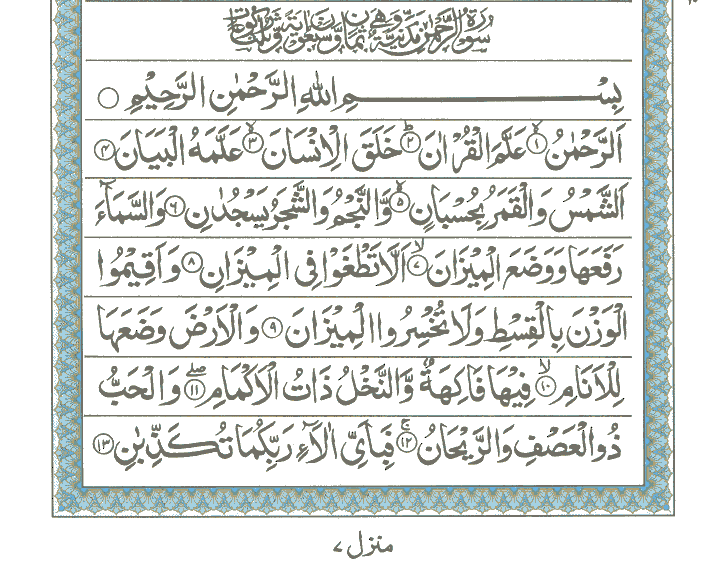 سُوْرَةُ الرَّحْمٰنِ مَدَنِيَّةٌ وَّهِيَ ثَمَانٌ وَّسَبْعُوْنَ اٰيَةً وَّثَلٰثُ رُكُوْعَاتٍ
بِسْمِ اللّٰهِ الرَّحْمٰنِ الرَّحِيْمِ ۝
اَلرَّحْمٰنُ ۙ﴿۱﴾ عَلَّمَ الْقُرْاٰنَ ؕ﴿۲﴾ خَلَقَ الْاِنْسَانَ ۙ﴿۳﴾ عَلَّمَهُ الْبَيَانَ ﴿۴﴾
اَلشَّمْسُ وَالْقَمَرُ بِحُسْبَانٍ ۙ﴿۵﴾ وَّالنَّجْمُ وَالشَّجَرُ يَسْجُدٰنِ ﴿۶﴾ وَالسَّمَآءَ
رَفَعَهَا وَوَضَعَ الْمِيْزَانَ ۙ﴿۷﴾ اَلَّا تَطْغَوْا فِى الْمِيْزَانِ ﴿۸﴾ وَاَقِيْمُوا
الْوَزْنَ بِالْقِسْطِ وَلَا تُخْسِرُوا الْمِيْزَانَ ﴿۹﴾ وَالْاَرْضَ وَضَعَهَا
لِلْاَنَامِ ۙ﴿۱۰﴾ فِيْهَا فَاكِهَةٌ وَّالنَّخْلُ ذَاتُ الْاَكْمَامِ ۖ﴿۱۱﴾ وَالْحَبُّ
ذُو الْعَصْفِ وَالرَّيْحَانُ ۚ﴿۱۲﴾ فَبِاَىِّ اٰلَآءِ رَبِّكُمَا تُكَذِّبٰنِ ﴿۱۳﴾
منزل ۷